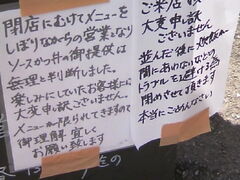 閉店にむけてメニューを
しぼりながらの営業となり
ソースかつ丼の御提供は
無理と判断しました。
楽しみにしていたお客様には
大変申し訳ございません
メニューが限られてきますので
御理解 宜しく
お願い致します
ご来店
大変申し訳
ございません
並んだ後に
間にあわないなどの
トラブルを避ける為
閉めさせて頂きます
本当にごめんなさい